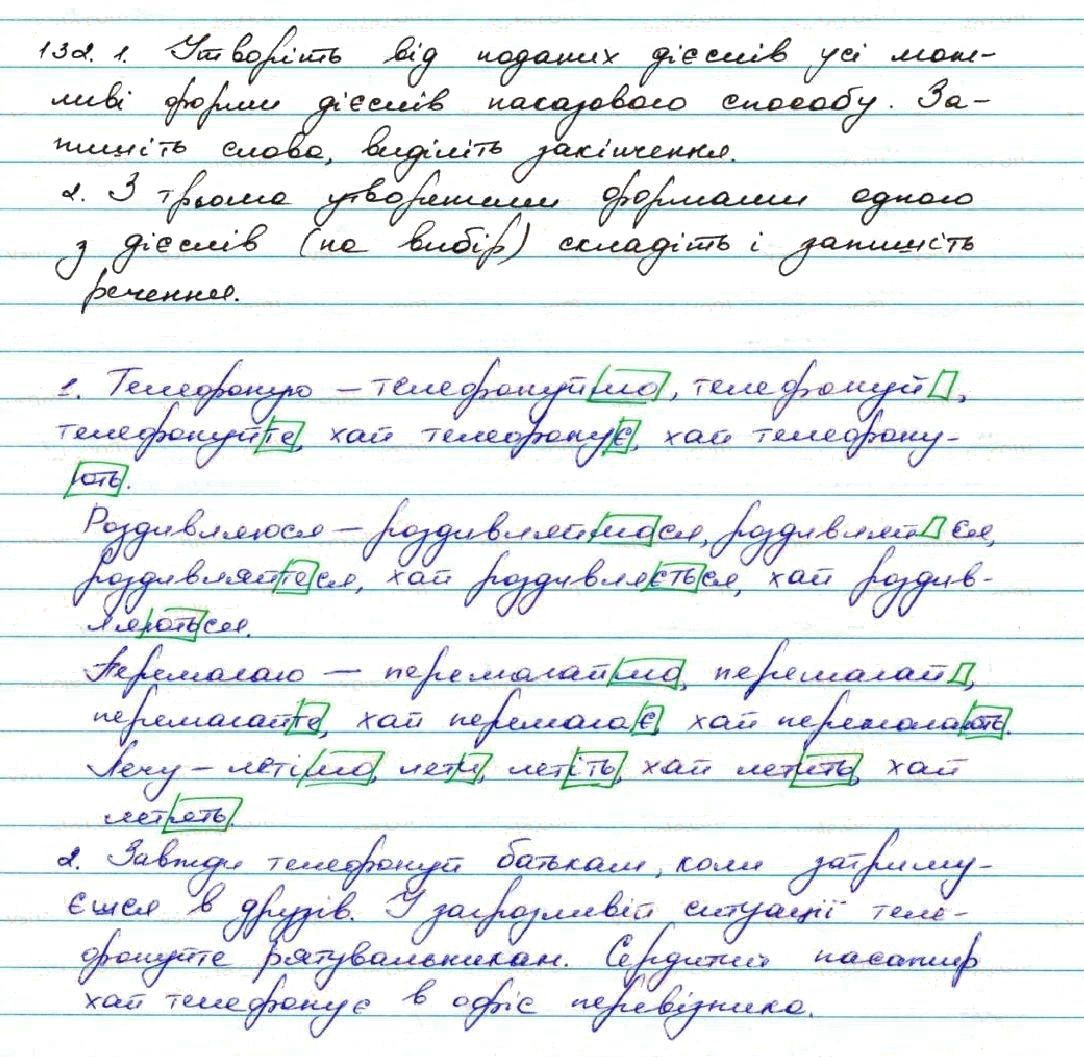 132. 1. Утворіть від поданих дієслів усі мож-
ливі форми дієслів наказового способу. За-
пишіть слова, виділіть закінчення.
2. З трьома утвореними формами одного
з дієслів (на вибір) складіть і запишість
речення.
1. Телефоную – телефонуймо, телефонуй,
телефонуйте, хай телефонує, хай телефону-
ють.
Роздивляюся – роздивляймося, роздивляйся,
роздивляйтеся, хай роздивляється, хай роздив-
ляються.
Перемагаю – перемагаймо, перемагай,
перемагайте, хай перемагає, хай перемагають.
Лечу – летімо, лети, летіть, хай летить, хай
летять.
2. Завжди телефонуй батькам, коли затриму-
єшся в друзів. У загрозливій ситуації теле-
фонуйте рятувальникам. Сердитий пасажир
хай телефонує в офіс перевізника.